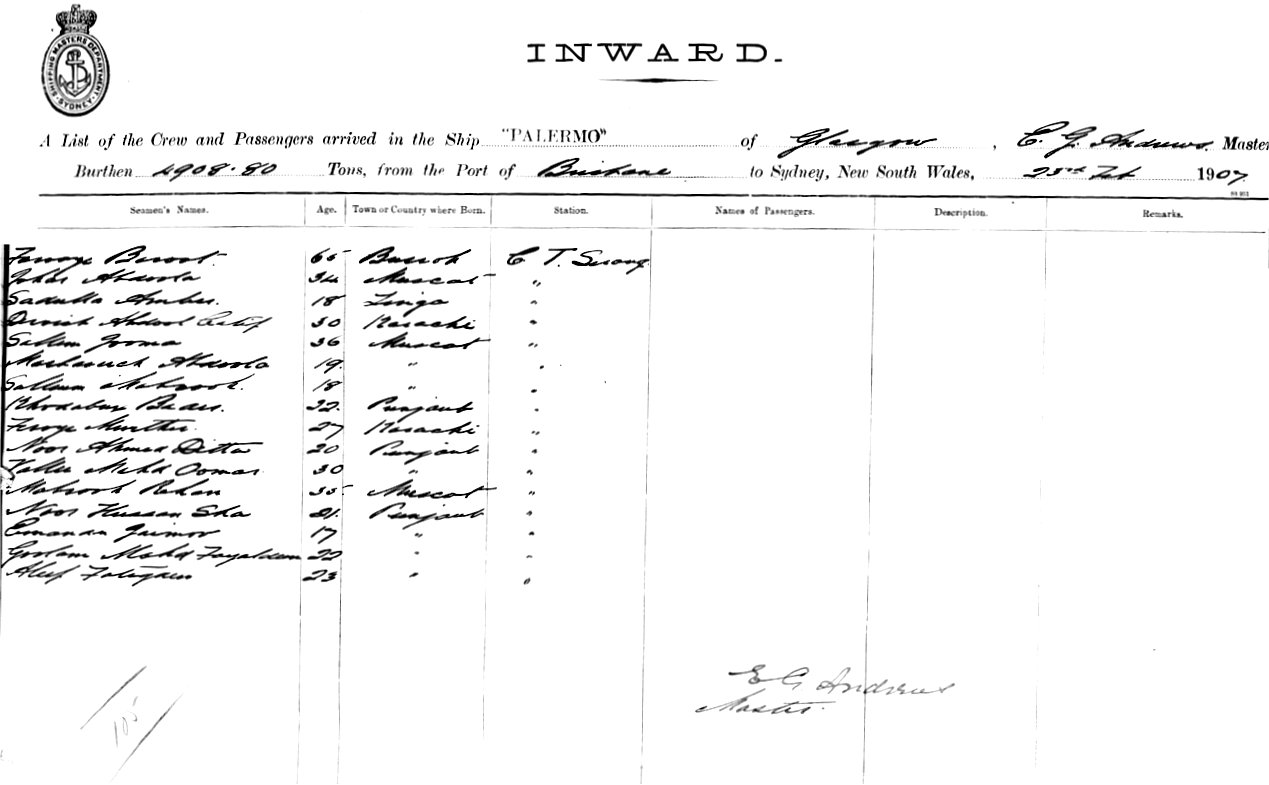 SHIPPING MASTERS DEPARTMENT
SYDNEY
INWARD.
A List of the Crew and Passengers arrived in the Ship "PALERMO" of Glasgow, E. G. Andrews. Master
Burthen 4908.80 Tons, from the Port of Brisbane to Sydney, New South Wales, 23rd Feb 1907
Seamen's Names. Age. Town or Country where Born. Station. Names of Passengers. Description. Remarks.
65 Bussoh C T. Serang
Abdoola 34 Muscat "
Sadulla Amber. 18 Linga "
Abdool 30 Karachi "
Sallem Jooma 36 Muscat "
Abdoola 19. " "
Mabrook. 18 " "
Khodabux 22. Punjaub "
27 Karachi "
Noor Ahmed Ditta 20 Punjaub "
Mahd Oomar 30 " "
Mabrook Rehan 35 Muscat "
Noor Hussan Sha 21. Punjaub "
17 " "
Goolam Mahd 22 " "
23 " "
E G Andrews
Master.
105